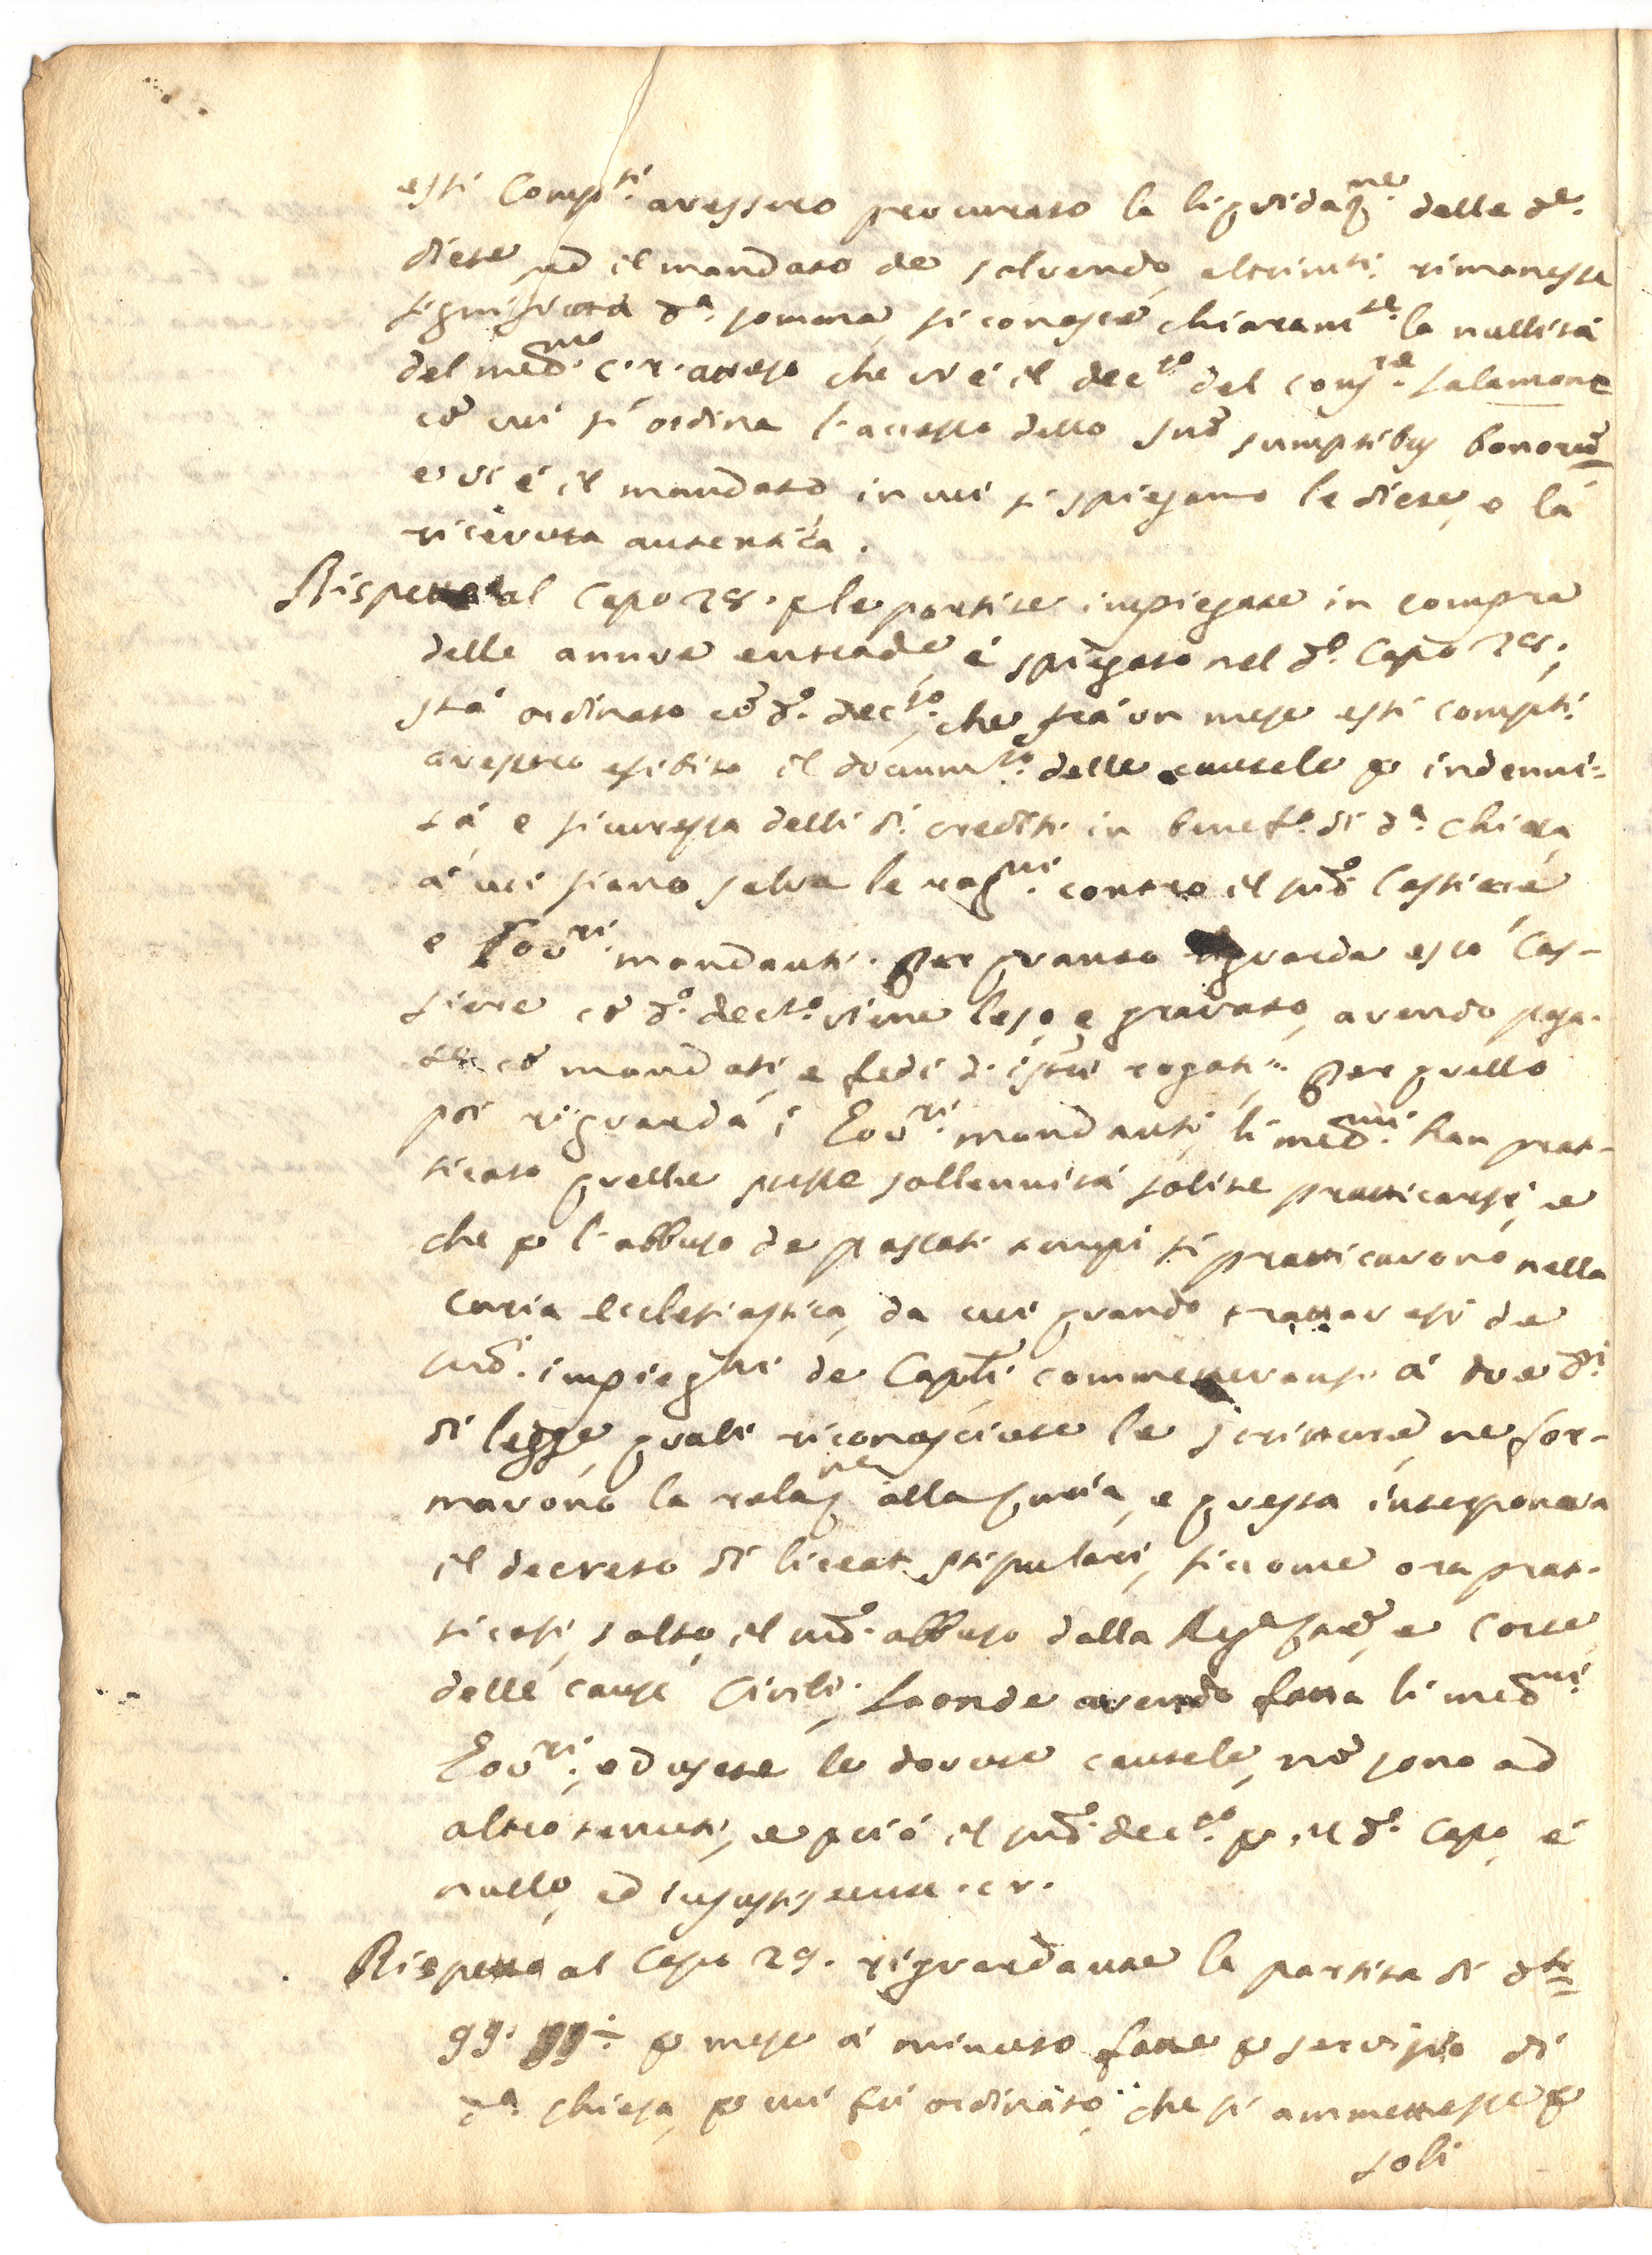 essi Comp.ti avessero procurato la liquidaz.ne delle d.e
diete, ed il mandato de solvendo, altrim.ti rimanesse
significata d.a somma, si conosce chiaram.te la nullità
del med.mo c. r. atteso che vi è il dec.to del Cons.re Salamone
cō cui si ordina l'accesso dello sud.o sumptibus bonorū
e vi è il mandato, in cui si spiegano le diete, e la
ricevuta autentica.
Rispetto al Capo 28. p le partite impiegate in compra
delle annue entrade, è spiegato nel d.o Capo 28.,
stà ordinato cō d.o dec.to, che frà un mese essi compti.
avessero esibito il docum.to delle cautele p indenni=
tà, e sicurezza delli d.i crediti in benef.o di d.a chiesa,
à cui siano salve le rag.ni contro il sud.o Cassiere
e Gov.ri mandanti. Per quanto riguarda esso Cas-
siere cō d.o dec.to viene leso, e gravato, avendo paga-
te cō mandati, e fedi d'istrī rogati. Per quello
poi riguarda i Gov.ri mandanti, li med.mi han prat-
ticato quelle stesse sollennità solite pratticarsi, e
che p l'abbuso de passati tempi si pratticavono nella
Curia Ecclesiastica, da cui quando trattavasi de
sud. impieghi de Cap.li commettevansi à due D.ri
di legge, quali riconosciute le scritture, ne for-
mavono la relaz.ne alla Curia, e questa interponeva
il decreto di liceat stipulari, siccome ora prat-
ticasi, tolto il sud.o abbuso dalla Reg.a Giune, e Corte
delle cause Civili; Laonde avendo fatta li med.mi
Gov.ri, ed usate le dovute cautele, nō sono ad
altro tenuti, e pciò il sud.o dec.to p il d.o Capo, è
nullo, ed insussistente. c. r.
Rispetto al Capo 29. riguardante la partita di d.ti
99. p mese à minuto fatte p servizio di
d.a chiesa, p cui fù ordinato, che si ammettesse p
soli